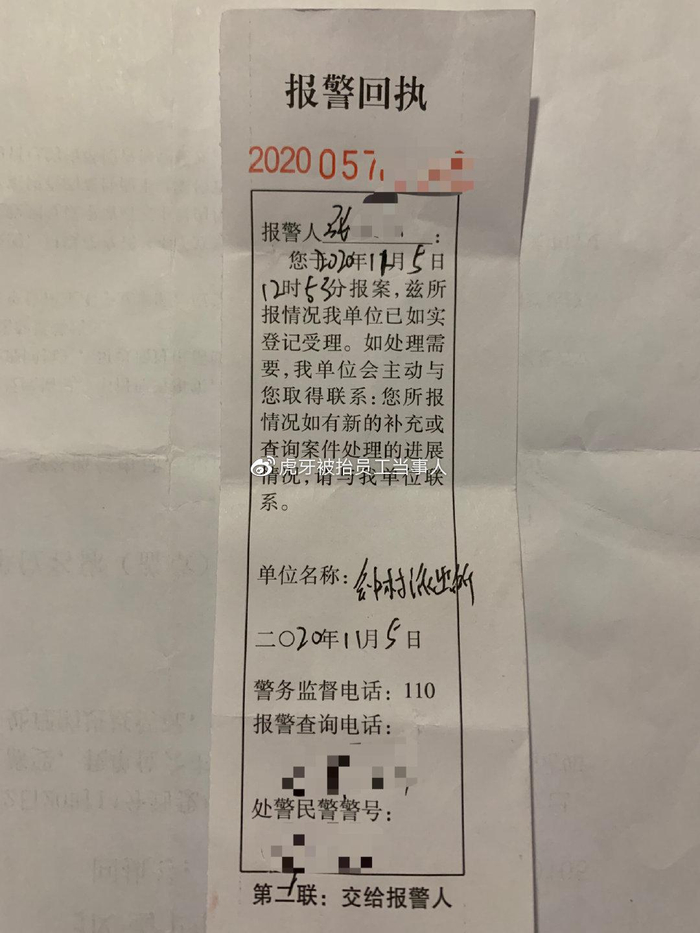 报警回执
2020057
报警人张:
您于2020年11月5日
12时53分报案，兹所
报情况我单位已如实
登记受理。如处理需
要，我单位会主动与
您取得联系：您所报
情况如有新的补充或
查询案件处理的进展
情况，请与我单位联
系。
虎牙被抬员工当事人
单位名称：钟村派出所
二〇20年11月5日
警务监督电话：110
报警查询电话：
处警民警警号：
第二联：交给报警人